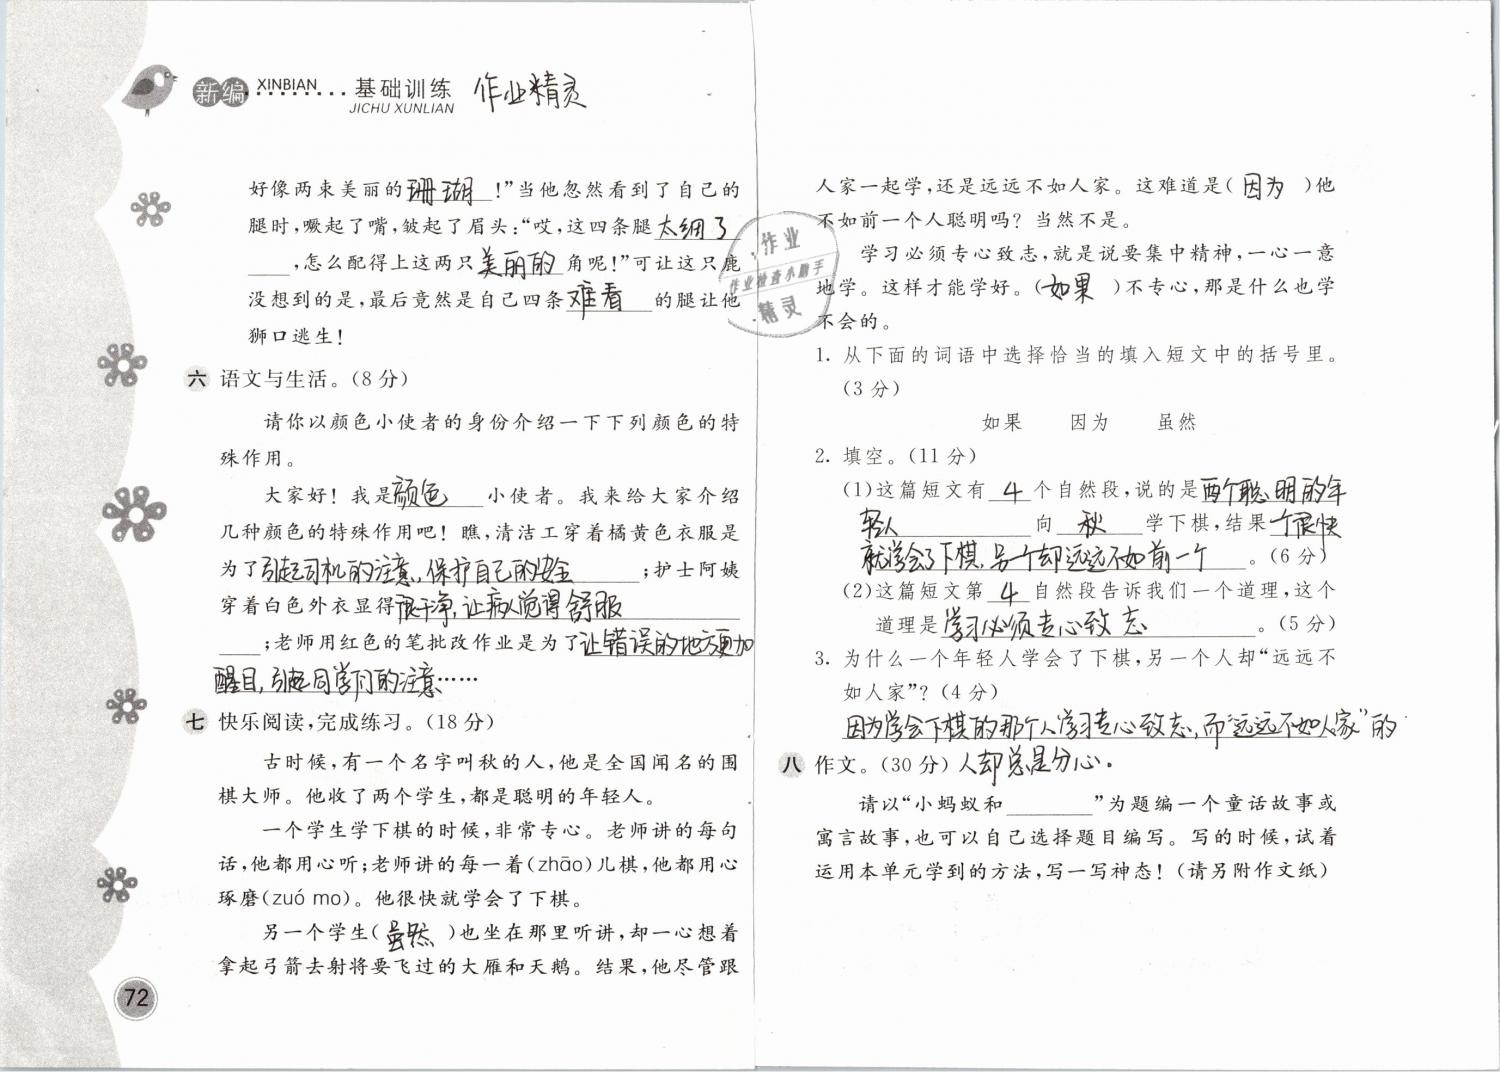 新编 XINBIAN 基础训练 作业精灵
JICHU XUNLIAN
好像两束美丽的珊瑚!”当他忽然看到了自己的
腿时,噘起了嘴,皱起了眉头:“哎,这四条腿太细了
,怎么配得上这两只美丽的角呢!”可让这只鹿
没想到的是,最后竟然是自己四条难看的腿让他
狮口逃生!
六 语文与生活。(8分)
请你以颜色小使者的身份介绍一下下列颜色的特
殊作用。
大家好!我是颜色小使者。我来给大家介绍
几种颜色的特殊作用吧!瞧,清洁工穿着橘黄色衣服是
为了引起司机的注意,保护自己的安全;护士阿姨
穿着白色外衣显得很干净,让病人觉得舒服
;老师用红色的笔批改作业是为了让错误的地方更加
醒目,引起同学们的注意……
七 快乐阅读,完成练习。(18分)
古时候,有一个名字叫秋的人,他是全国闻名的围
棋大师。他收了两个学生,都是聪明的年轻人。
一个学生学下棋的时候,非常专心。老师讲的每句
话,他都用心听;老师讲的每一着(zhāo)儿棋,他都用心
琢磨(zuó mo)。他很快就学会了下棋。
另一个学生(虽然)也坐在那里听讲,却一心想着
拿起弓箭去射将要飞过的大雁和天鹅。结果,他尽管跟
72
人家一起学,还是远远不如人家。这难道是(因为)他
不如前一个人聪明吗?当然不是。
学习必须专心致志,就是说要集中精神,一心一意
地学。这样才能学好。(如果)不专心,那是什么也学
不会的。
作业
作业检查小助手
精灵
1. 从下面的词语中选择恰当的填入短文中的括号里。
(3分)
如果 因为 虽然
2. 填空。(11分)
(1)这篇短文有4个自然段,说的是两个聪明的年
轻人向秋学下棋,结果一个很快
就学会了下棋,另一个却远远不如前一个。(6分)
(2)这篇短文第4自然段告诉我们一个道理,这个
道理是学习必须专心致志。(5分)
3. 为什么一个年轻人学会了下棋,另一个人却“远远不
如人家”?(4分)
因为学会下棋的那个人学习专心致志,而“远远不如人家”的
人却总是分心。
八 作文。(30分)
请以“小蚂蚁和________”为题编一个童话故事或
寓言故事,也可以自己选择题目编写。写的时候,试着
运用本单元学到的方法,写一写神态!(请另附作文纸)